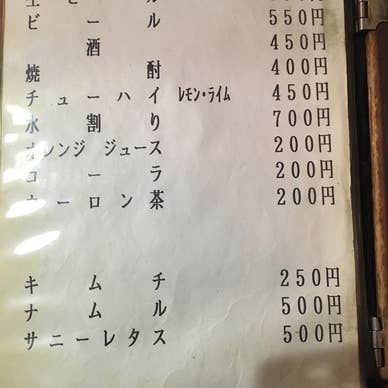 ビール 550円
酒 450円
焼酎 400円
チューハイ レモン・ライム 450円
水割り 700円
オレンジ ジュース 200円
コーラ 200円
ウーロン茶 200円
キムチ 250円
ナムル 500円
サニーレタス 500円